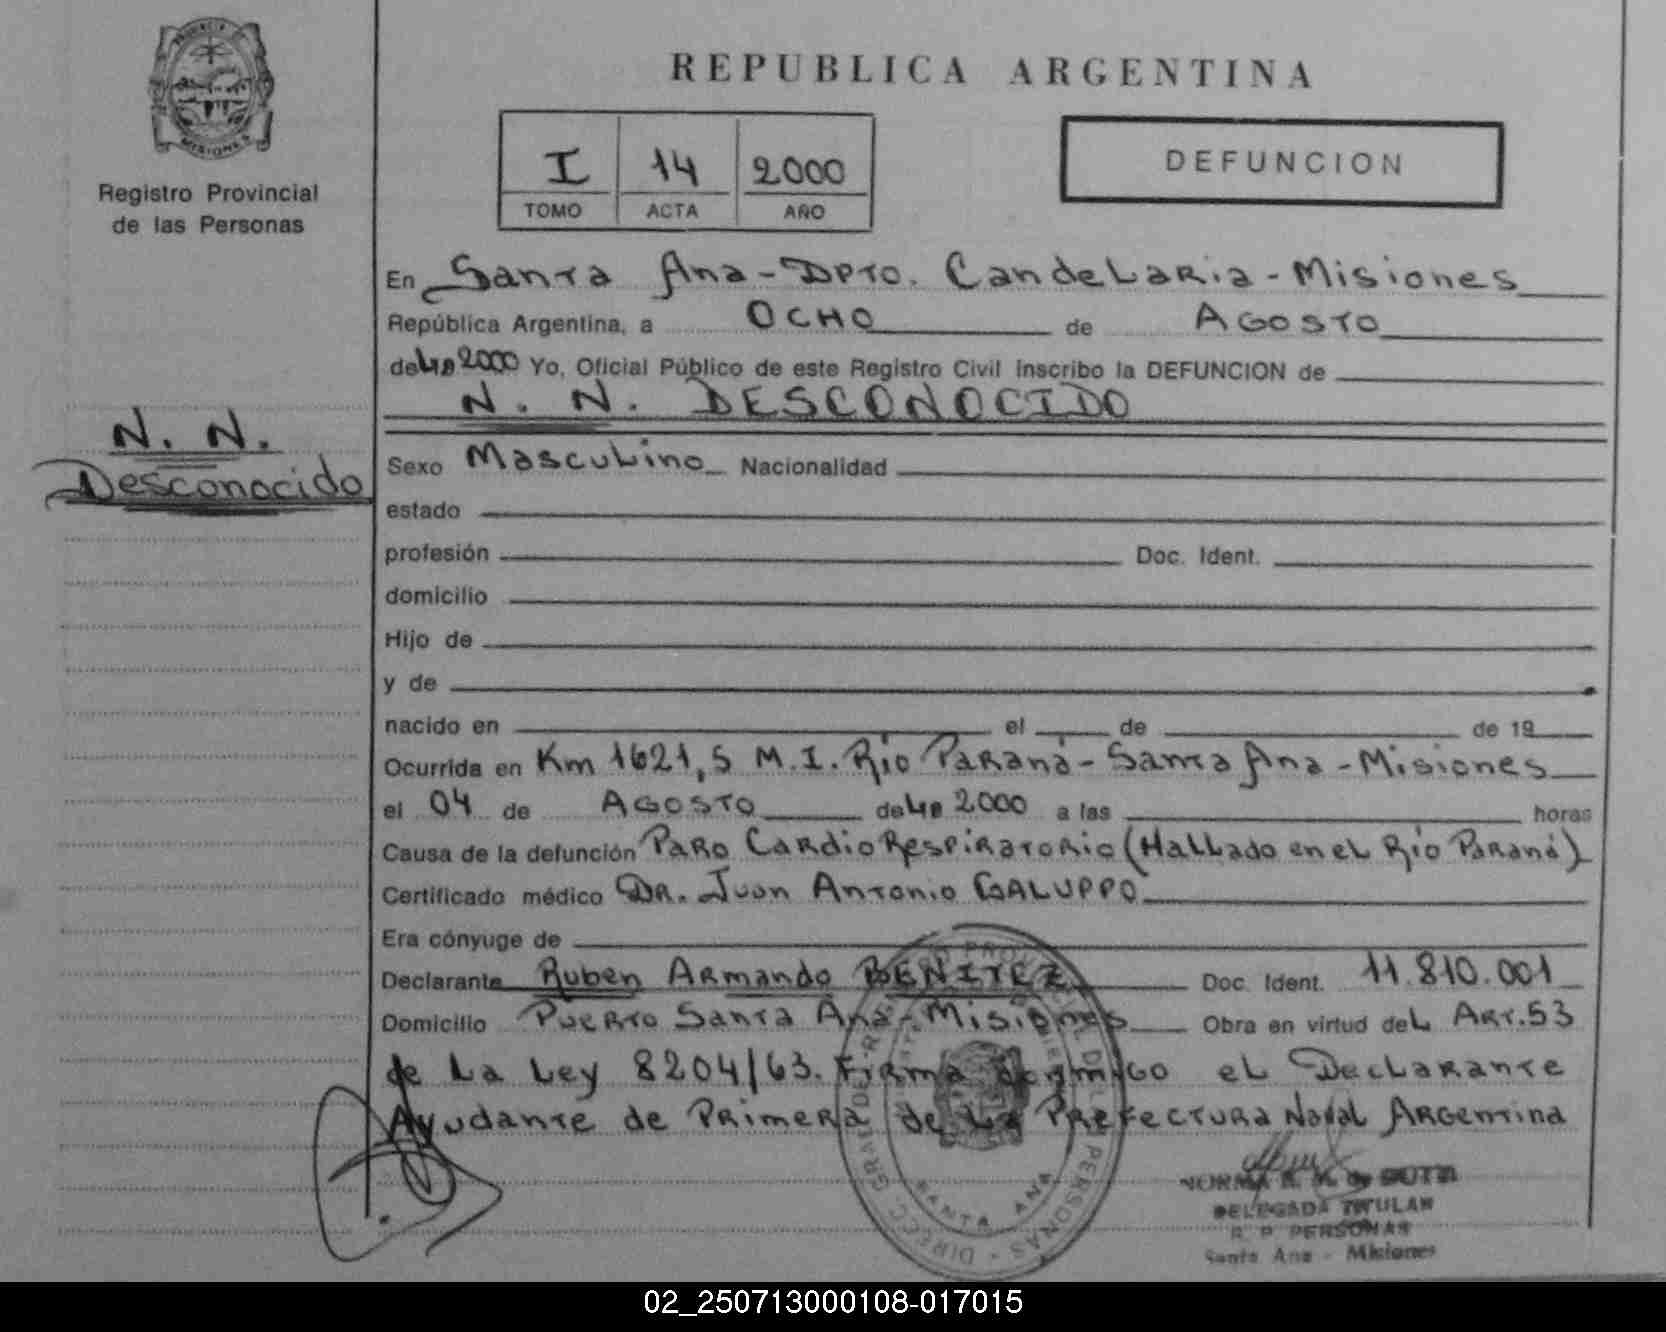 PROVINCIA DE
MISIONES
Registro Provincial
de las Personas
N. N.
Desconocido
REPUBLICA ARGENTINA
I 14 2000
TOMO ACTA AÑO
DEFUNCION
En Santa Ana - Dpto. Candelaria - Misiones
República Argentina, a OCHO de AGOSTO
del 2000 Yo, Oficial Público de este Registro Civil inscribo la DEFUNCION de
N. N. DESCONOCIDO
Sexo Masculino Nacionalidad
estado
profesión Doc. Ident.
domicilio
Hijo de
y de
nacido en el de de 19
Ocurrida en Km 1621,5 M.I. Río Paraná - Santa Ana - Misiones
el 04 de AGOSTO del 2000 a las horas
Causa de la defunción Paro CardioRespiratorio (Hallado en el Río Paraná)
Certificado médico DR. Juan Antonio GALUPPO
Era cónyuge de
Declarante Ruben Armando BENITEZ Doc. Ident. 11.810.001
Domicilio Puerto Santa Ana - Misiones Obra en virtud del Art. 53
de La Ley 8204/63. Firma conmigo el Declarante
Ayudante de Primera de La Prefectura Naval Argentina
SANTA ANA
NORMA
DELEGADA TITULAR
R. P. PERSONAS
Santa Ana - Misiones
02_250713000108-017015